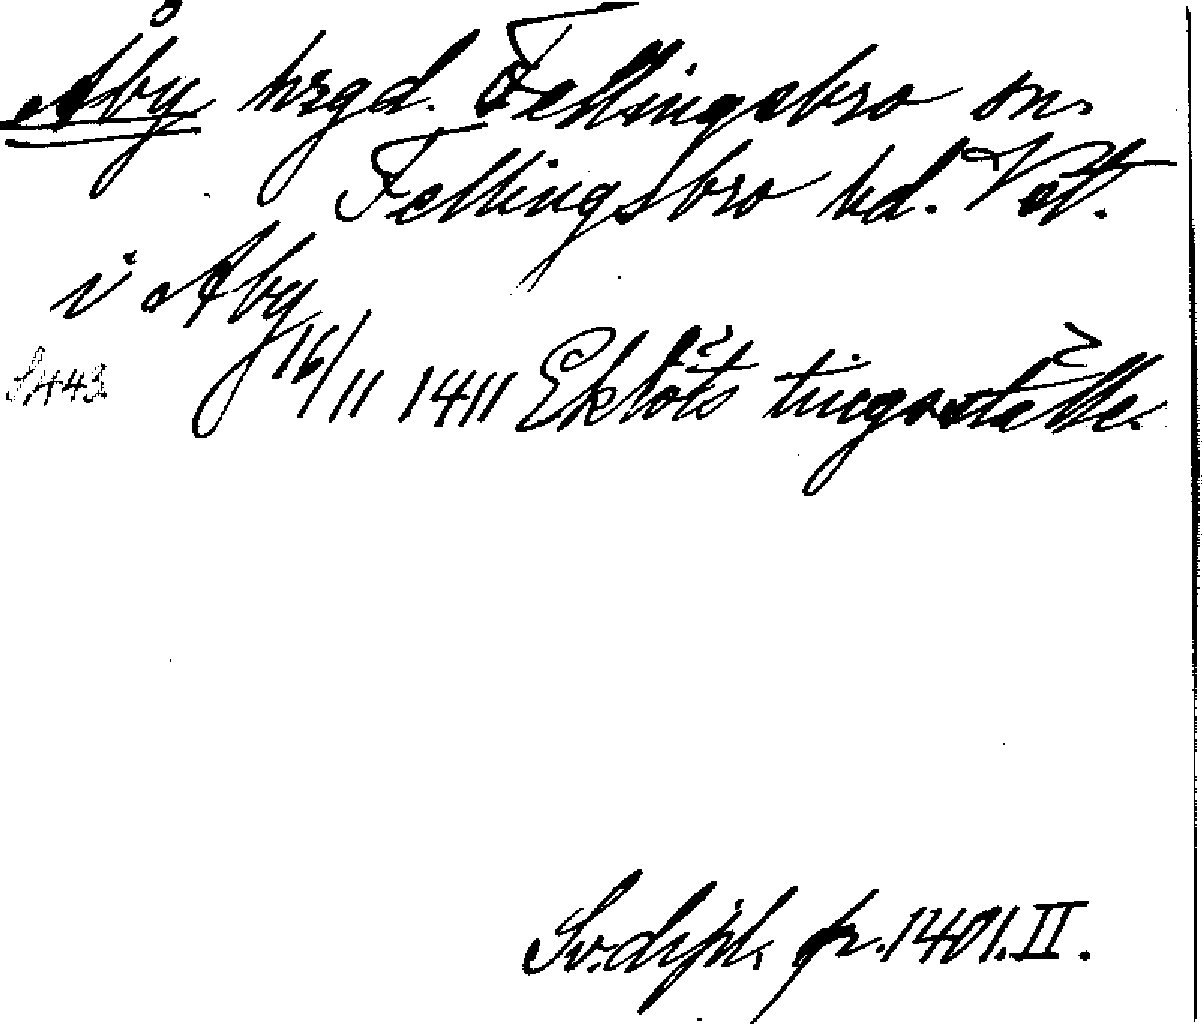 Åby hrgd. Fellingsbro sn.
Fellingsbro hd. Vstl.
i Aby
S. 443. 16/11 1411 Ekböts tingsställe
Sv. dipl. fr. 1401. II.